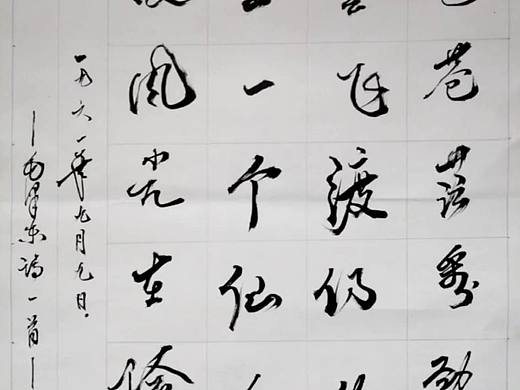 苍茫看劲
飞渡仍
一个仙
风光在险
一九六一年九月九日。
—毛泽东诗一首—